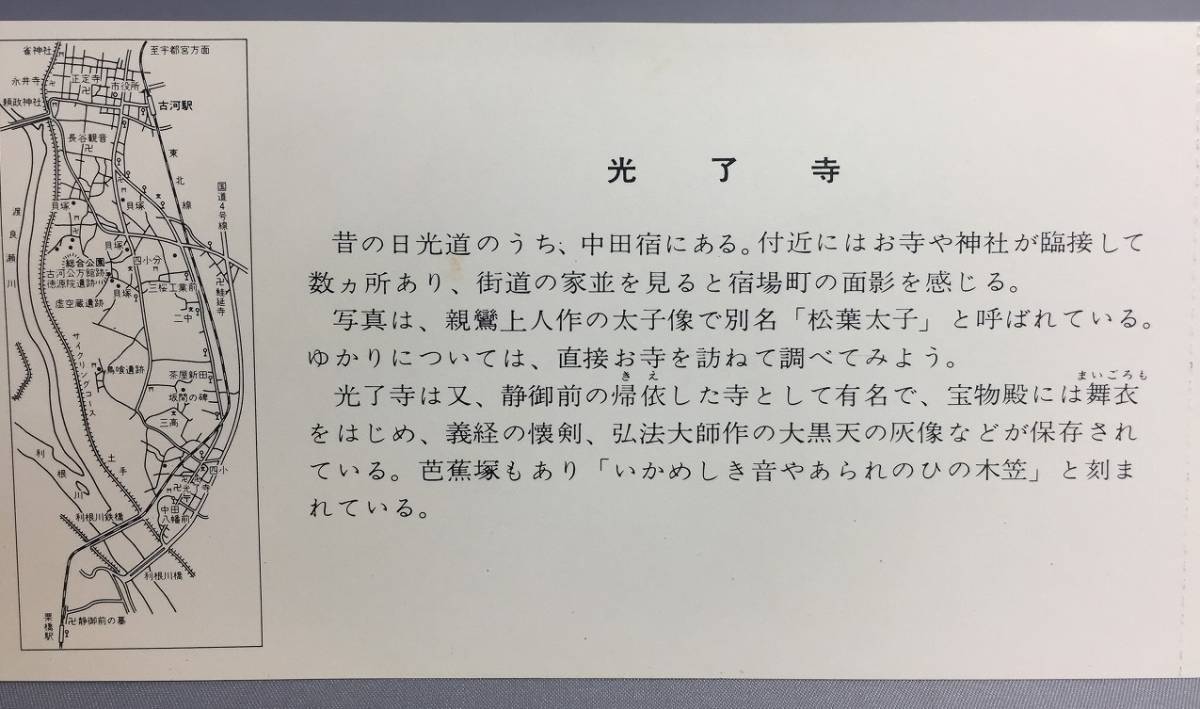 光了寺
昔の日光道のうち、中田宿にある。付近にはお寺や神社が臨接して
数ヵ所あり、街道の家並を見ると宿場町の面影を感じる。
写真は、親鸞上人作の太子像で別名「松葉太子」と呼ばれている。
ゆかりについては、直接お寺を訪ねて調べてみよう。
きえ
まいごろも
光了寺は又、静御前の帰依した寺として有名で、宝物殿には舞衣
をはじめ、義経の懐剣、弘法大師作の大黒天の灰像などが保存され
ている。芭蕉塚もあり「いかめしき音やあられのひの木笠」と刻ま
れている。
雀神社
至宇都宮方面
永井寺
正定寺
市役所
頼政神社
古河駅
長谷観音
東北線
国道4号線
渡良瀬川
貝塚
貝塚
貝塚
四小
総合公園
古河公方館跡
徳源院遺跡
貝塚
三桜工業前
虚空蔵遺跡
二中
卍鮭延寺
サイクリングコース
鳥喰遺跡
茶屋新田
坂間の碑
三高
利根川
土手
四小
中田
八幡前
利根川鉄橋
利根川橋
栗橋駅
卍静御前の墓